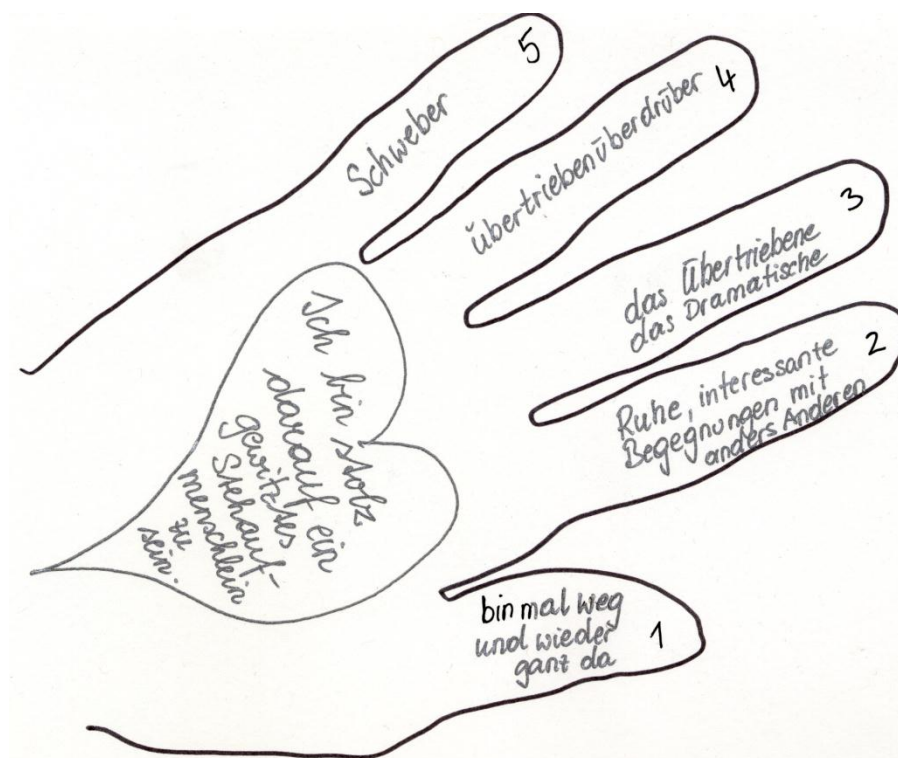 5
Schweber
4
übertriebenüberdrüber
3
das Übertriebene
das Dramatische
2
Ruhe, interessante
Begegnungen mit
anders Anderen
1
bin mal weg
und wieder
ganz da
Ich bin stolz
darauf ein
gewitztes
Stehauf-
menschlein
zu
sein.